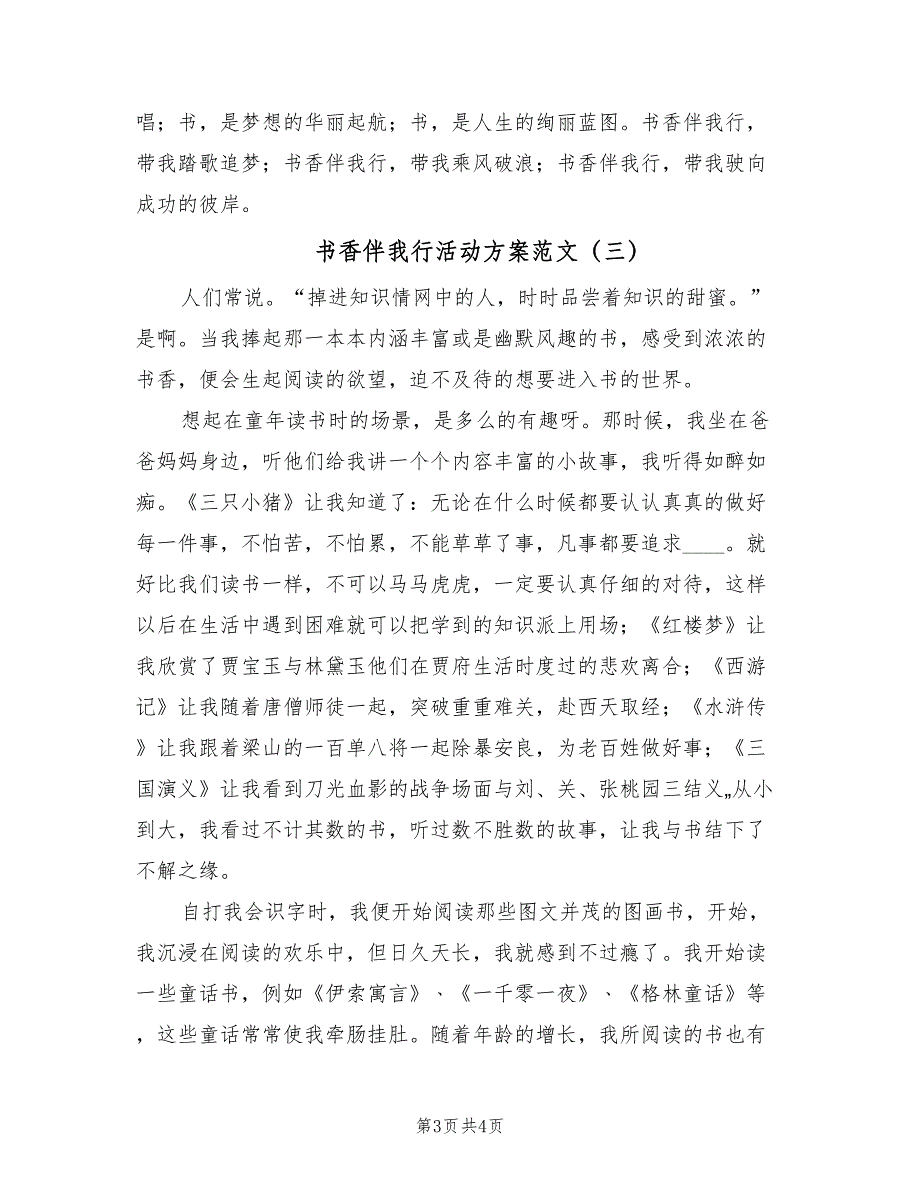 唱；书，是梦想的华丽起航；书，是人生的绚丽蓝图。书香伴我行，
带我踏歌追梦；书香伴我行，带我乘风破浪；书香伴我行，带我驶向
成功的彼岸。
书香伴我行活动方案范文（三）
人们常说。“掉进知识情网中的人，时时品尝着知识的甜蜜。”
是啊。当我捧起那一本本内涵丰富或是幽默风趣的书，感受到浓浓的
书香，便会生起阅读的欲望，迫不及待的想要进入书的世界。
想起在童年读书时的场景，是多么的有趣呀。那时候，我坐在爸
爸妈妈身边，听他们给我讲一个个内容丰富的小故事，我听得如醉如
痴。《三只小猪》让我知道了：无论在什么时候都要认认真真的做好
每一件事，不怕苦，不怕累，不能草草了事，凡事都要追求____。就
好比我们读书一样，不可以马马虎虎，一定要认真仔细的对待，这样
以后在生活中遇到困难就可以把学到的知识派上用场；《红楼梦》让
我欣赏了贾宝玉与林黛玉他们在贾府生活时度过的悲欢离合；《西游
记》让我随着唐僧师徒一起，突破重重难关，赴西天取经；《水浒传
》让我跟着梁山的一百单八将一起除暴安良，为老百姓做好事；《三
国演义》让我看到刀光血影的战争场面与刘、关、张桃园三结义„从小
到大，我看过不计其数的书，听过数不胜数的故事，让我与书结下了
不解之缘。
自打我会识字时，我便开始阅读那些图文并茂的图画书，开始，
我沉浸在阅读的欢乐中，但日久天长，我就感到不过瘾了。我开始读
一些童话书，例如《伊索寓言》、《一千零一夜》、《格林童话》等
，这些童话常常使我牵肠挂肚。随着年龄的增长，我所阅读的书也有
第3页共4页